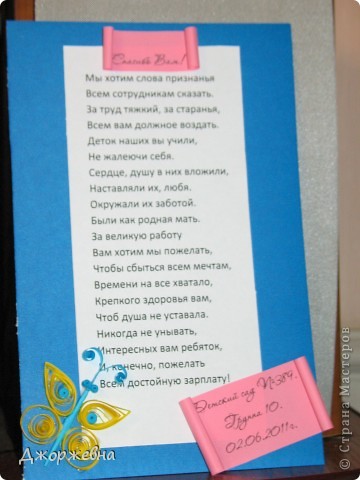 Спасибо Вам!
Мы хотим слова признанья
Всем сотрудникам сказать.
За труд тяжкий, за старанья,
Всем вам должное воздать.
Деток наших вы учили,
Не жалеючи себя.
Сердце, душу в них вложили,
Наставляли их, любя.
Окружали их заботой.
Были как родная мать.
За великую работу
Вам хотим мы пожелать,
Чтобы сбыться всем мечтам,
Времени на все хватало,
Крепкого здоровья вам,
Чтоб душа не уставала.
Никогда не унывать,
Интересных вам ребяток,
И, конечно, пожелать
Всем достойную зарплату!
Детский сад №384.
Группа 10.
02.06.2011г.
Джоржевна
© Страна Мастеров